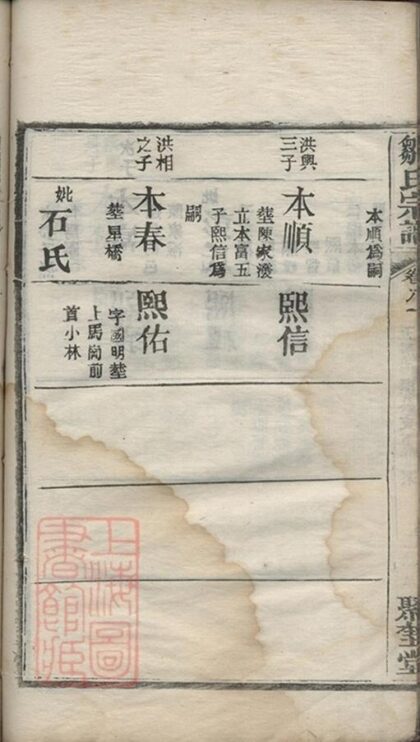 氏宗譜
卷
聚奎堂
本順爲嗣
洪興
三子
本順
塟陳家
立本富五
子熙信爲
嗣
熙信
洪相
之子
本春
塟星橋
熙佑
字國明塟
上馬崗前
首小林
妣石氏
上海圖
書館藏